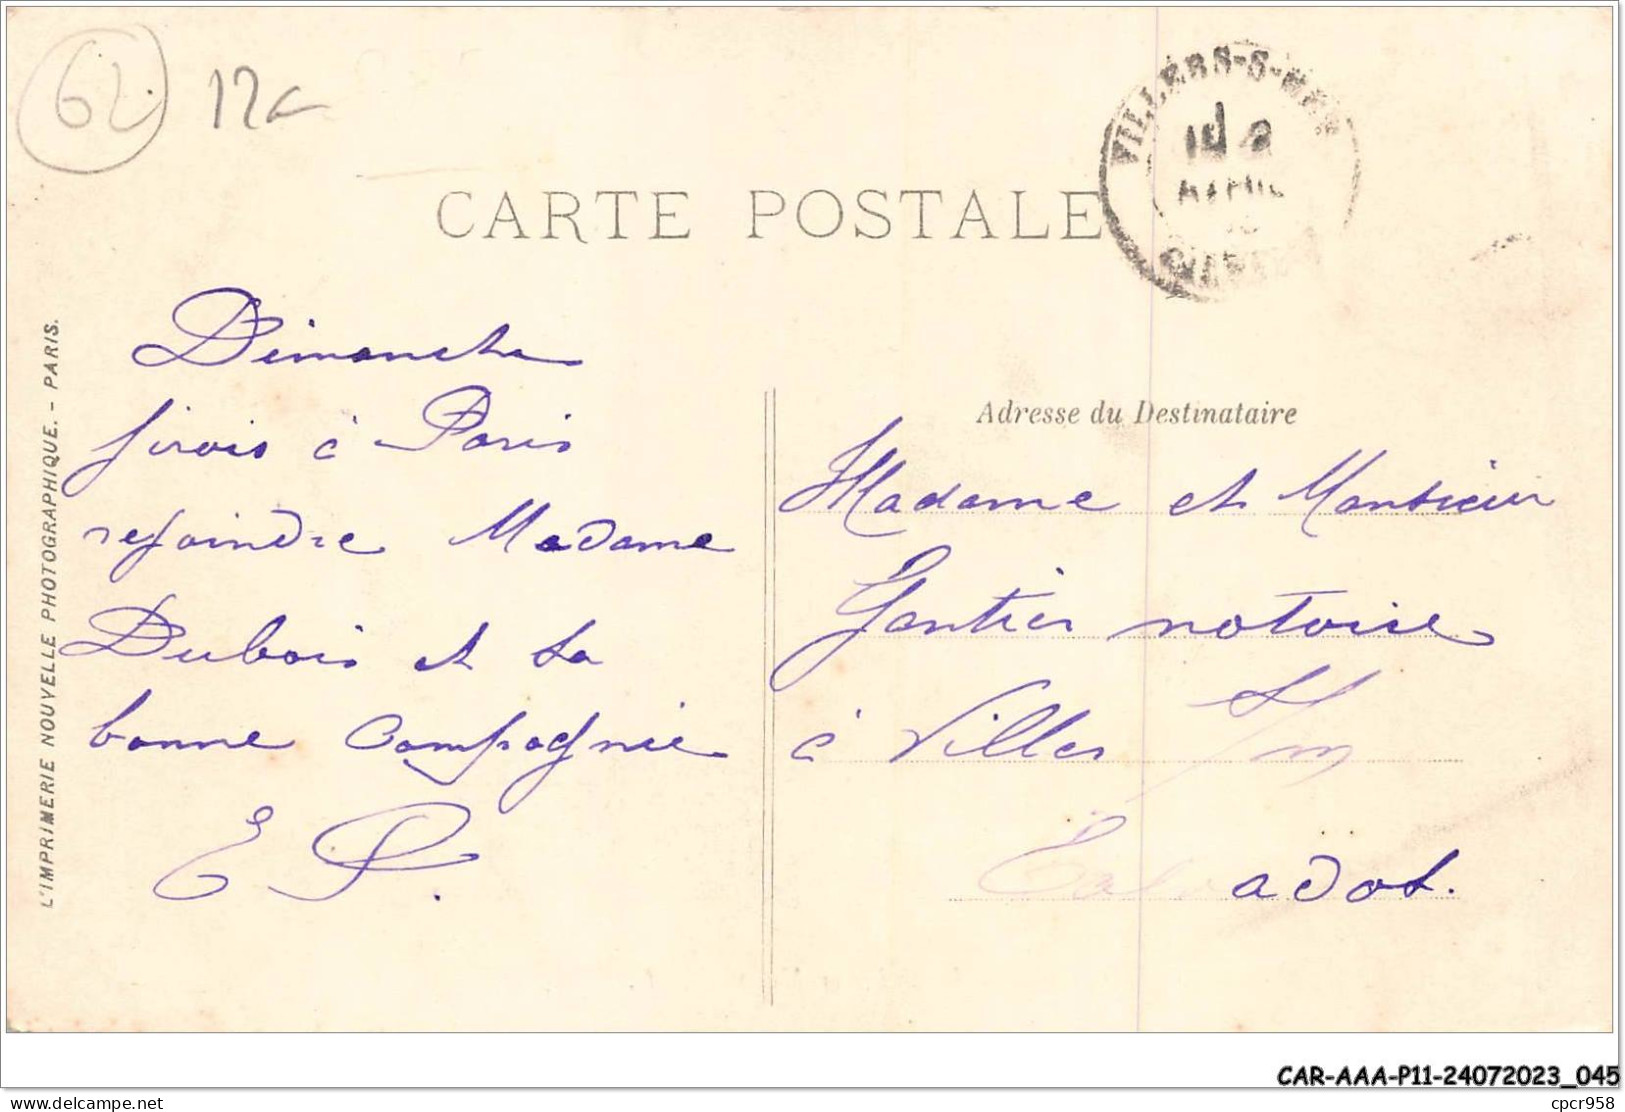 62 12c
VILLERS-S-MER
CARTE POSTALE
L'IMPRIMERIE NOUVELLE PHOTOGRAPHIQUE. - PARIS.
Dimanche
j'irais à Paris
rejoindre Madame
Dubois et sa
bonne compagnie
E P.
Adresse du Destinataire
Madame et Monsieur
Gautier notaire
à Villers s/m
Calvados.
CAR-AAA-P11-24072023_045
delcampe.net
cpcr958